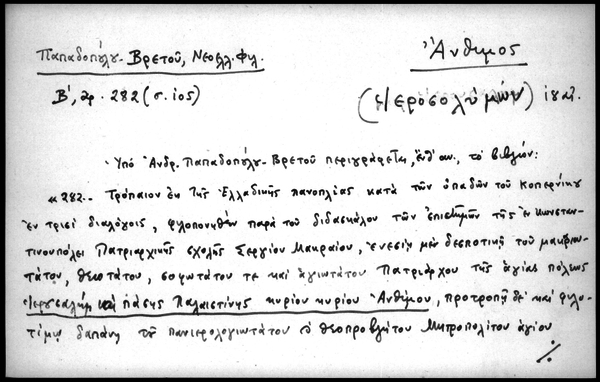 Παπαδοπούλου-Βρετοῦ, Νεοελλ. Φιλ.
Ἄνθιμος
Β', ἀρ. 282 (σ.
(Ἱεροσολύμων)
Ὑπὸ Ἀνδρ. Παπαδοπούλου-Βρετοῦ περιγράφεται, ἔνθ' ἀν., τὸ βιβλίον:
«282.- Τρόπαιον ἐκ τῆς Ἑλλαδικῆς πανοπλίας κατὰ τῶν ὀπαδῶν τοῦ Κοπερνίκου
ἐν τρισὶ διαλόγοις, φιλοπονηθὲν παρὰ τοῦ διδασκάλου τῶν ἐπιστημῶν τῆς ἐν Κωνσταν-
τινουπόλει Πατριαρχικῆς σχολῆς Σεργίου Μακραίου, ἐνέσει μὲν δεσποτικῇ τοῦ μακαριω-
τάτου, θειοτάτου, σοφωτάτου τε καὶ ἁγιωτάτου Πατριάρχου τῆς ἁγίας πόλεως
Ἱερουσαλὴμ καὶ πάσης Παλαιστίνης κυρίου κυρίου Ἀνθίμου, προτροπῇ δὲ καὶ φιλο-
τίμῳ δαπάνῃ τοῦ πανιερολογιωτάτου θεοπροβλήτου Μητροπολίτου ἁγίου
./.